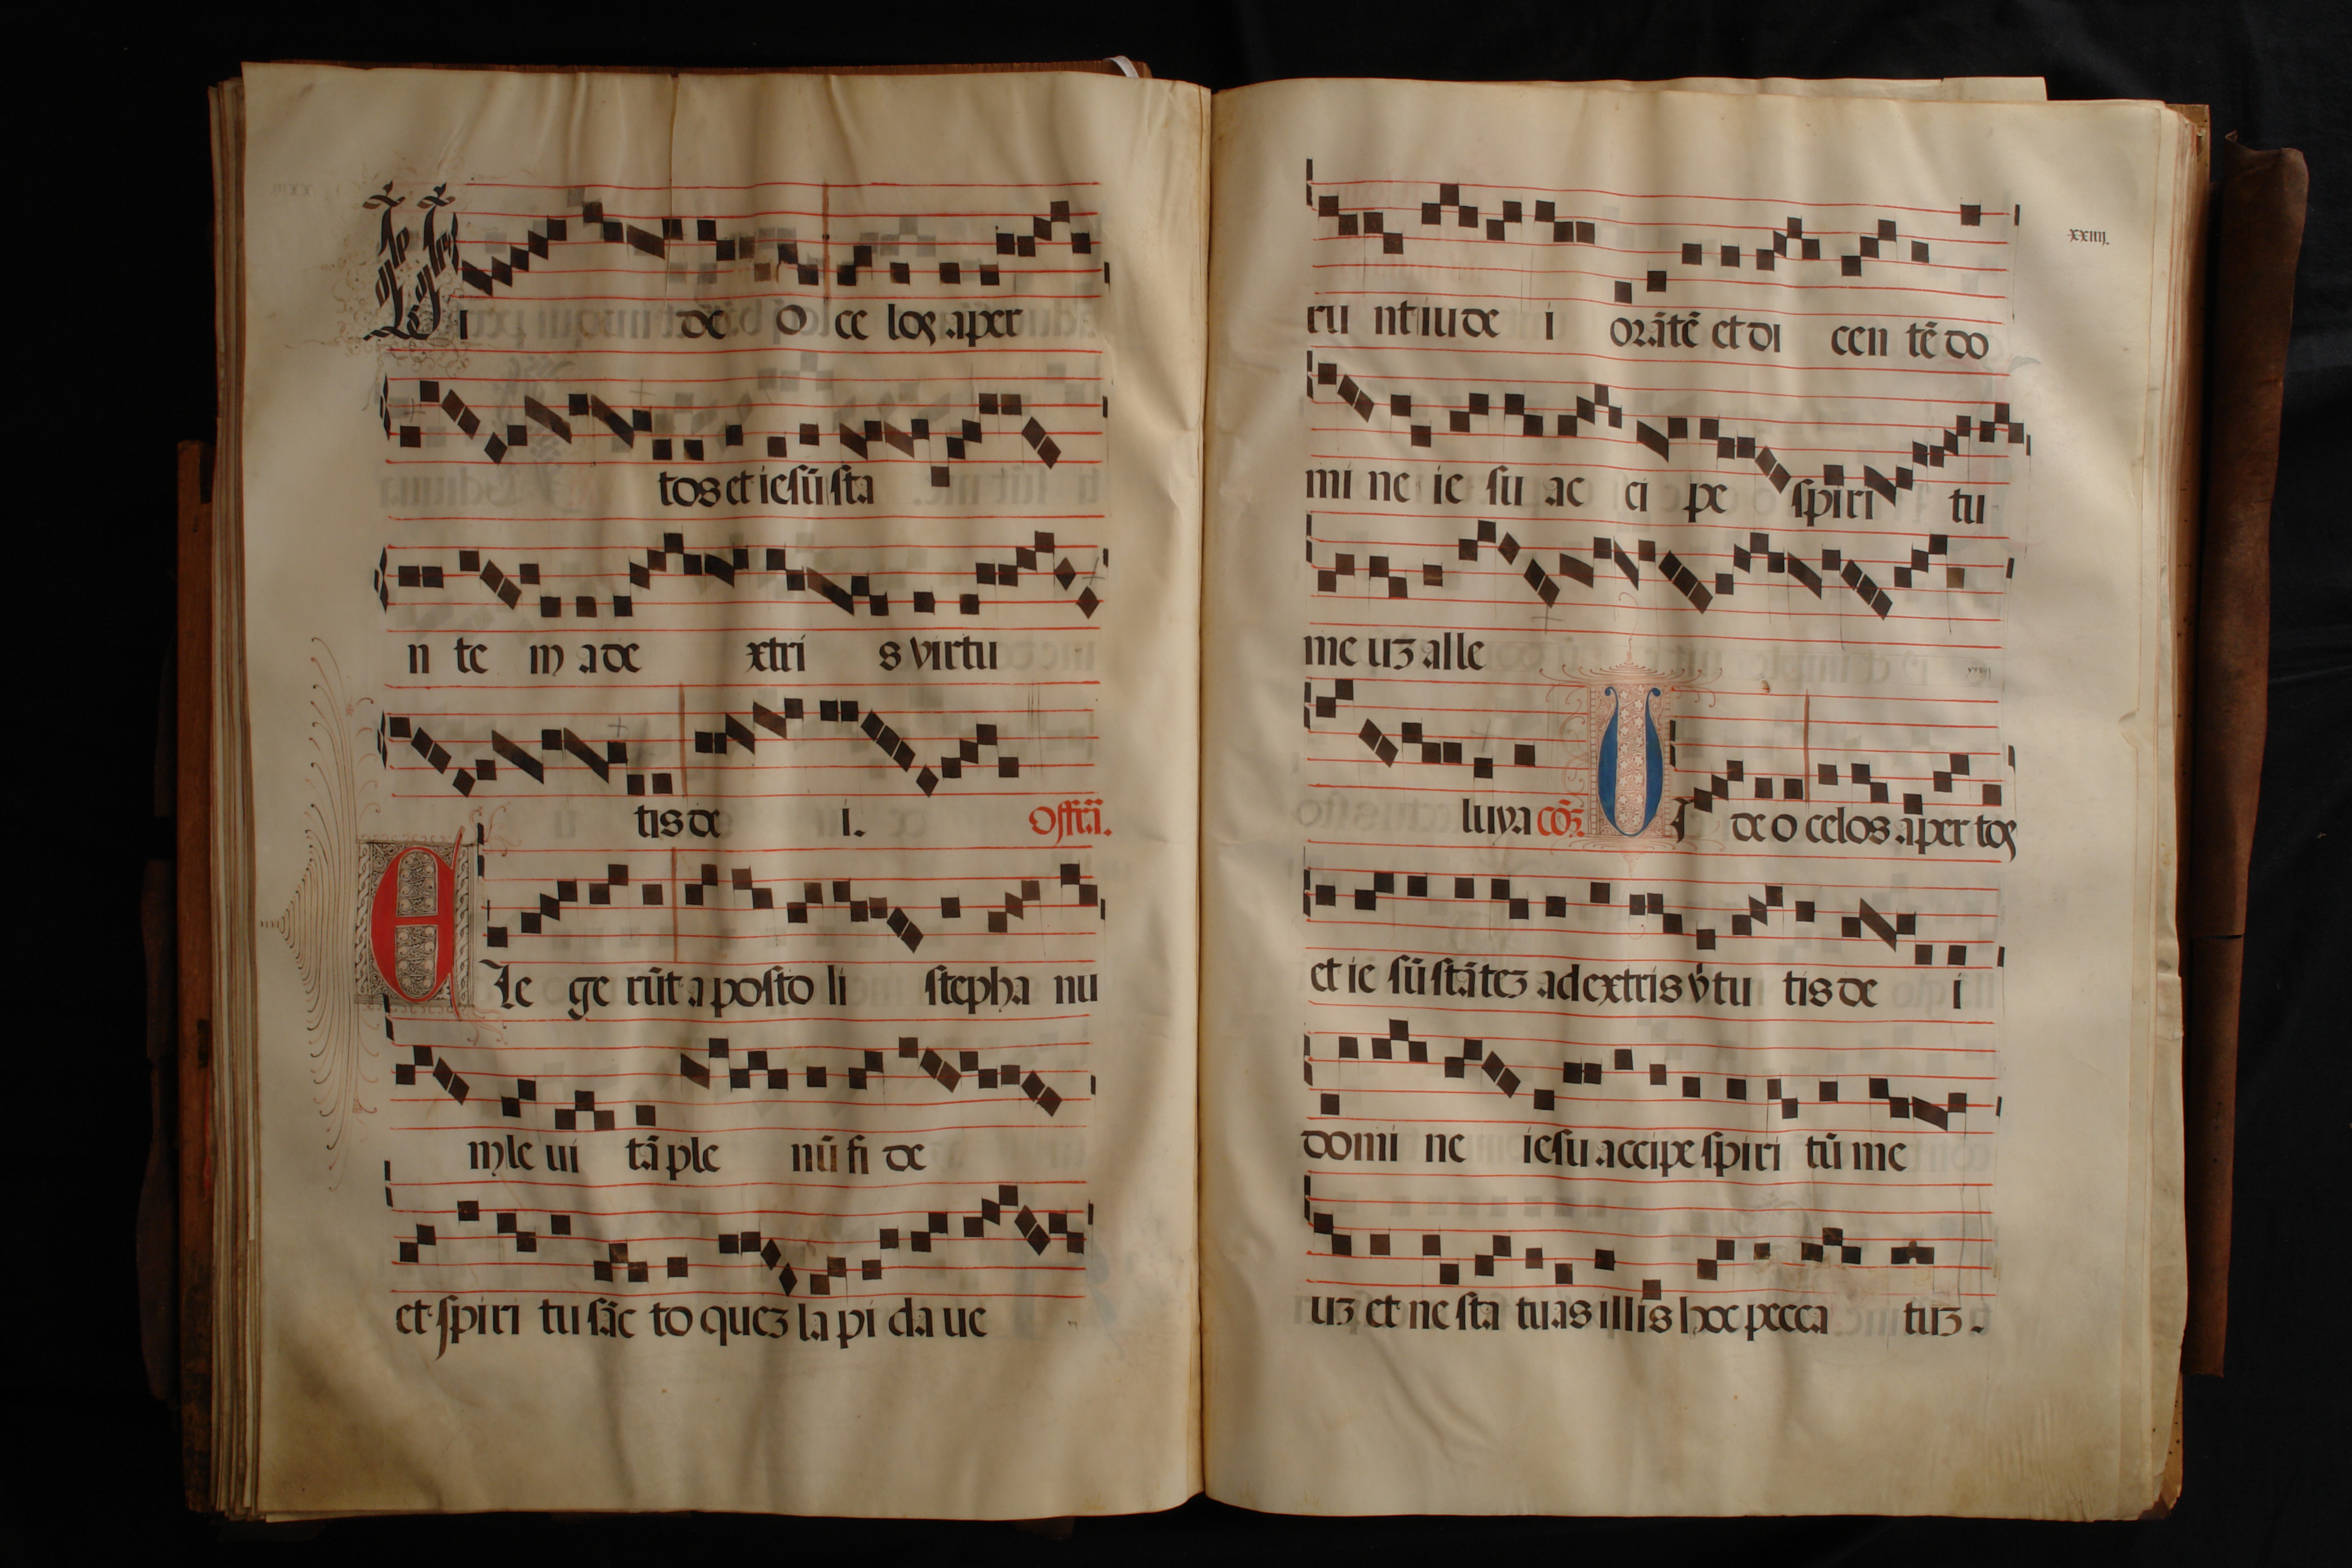 Vi de o ce los aper
tos et iesū sta
n te m a de xtri s virtu
tis de i. Offra.
E le ge rūt aposto li stepha nu
m le ui tā ple nū fi de
et spiri tu sāc to quez la pi da ue
xxiiij.
ru nt iude i orātē et di cen tē do
mi ne ie su ac ci pe spiri tu
me uz alle
luya cōz. Vi de o celos aper tos
et ie sū stātez ad extris v̇tu tis de i
domi ne iesu accipe spiri tū me
uz et ne sta tuas illis hoc pecca tuz.